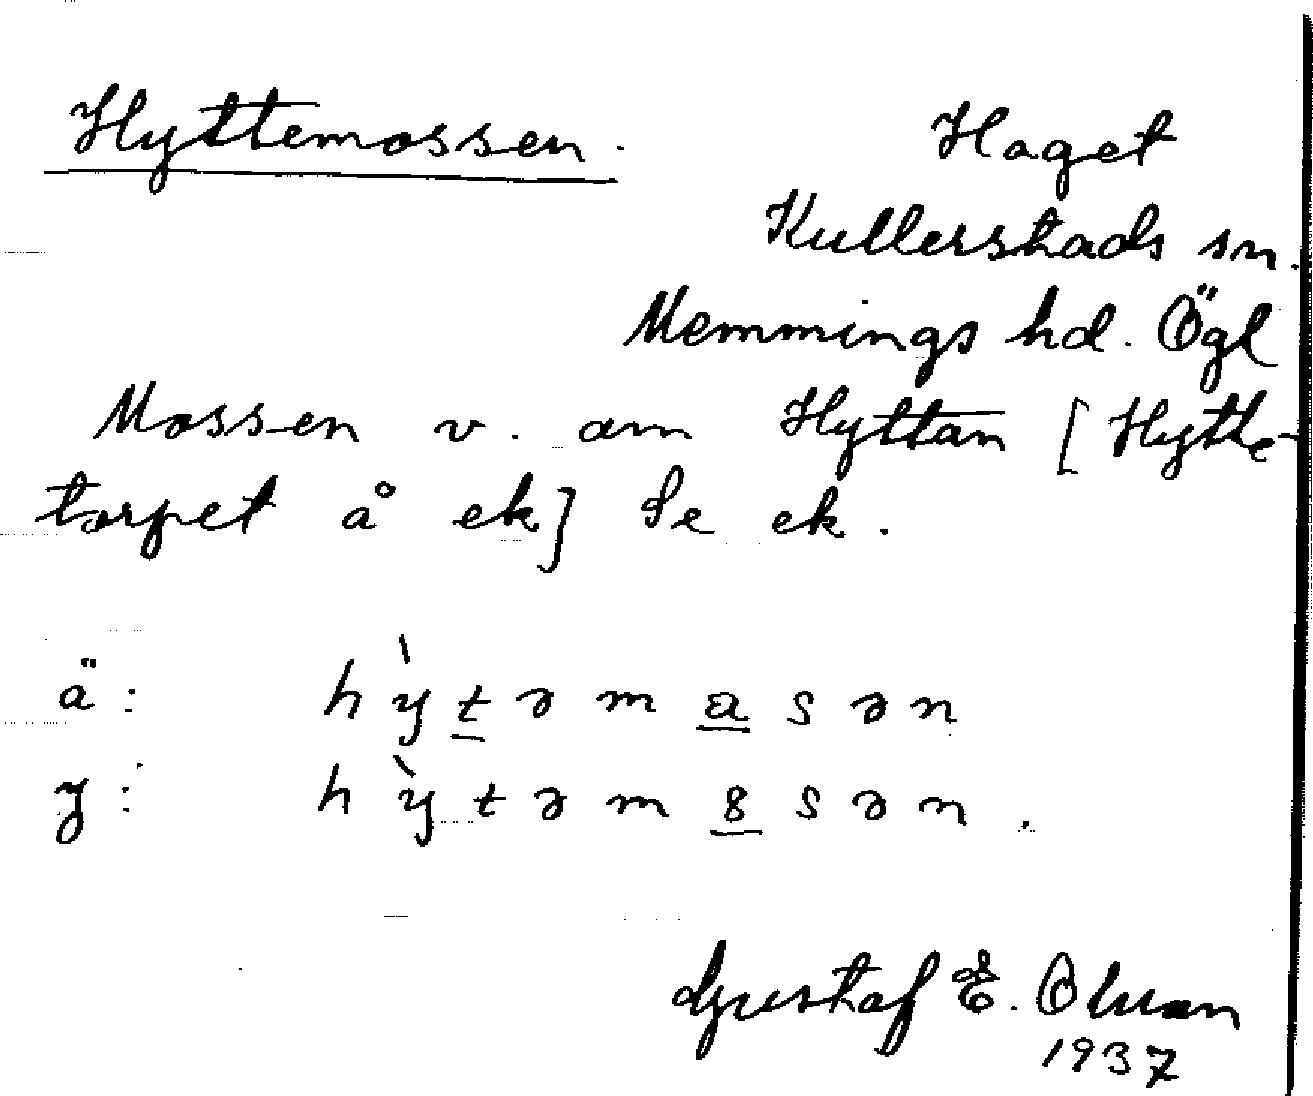 Hyttemossen.
Haget
Kullerstads sn.
Memmings hd. Ögl
Mossen v. om Hyttan [Hytte-
torpet å ek] Se ek.
ä: hỳtəmasən
y: hỳtəm8sən.
Gustaf E. Olson
1937